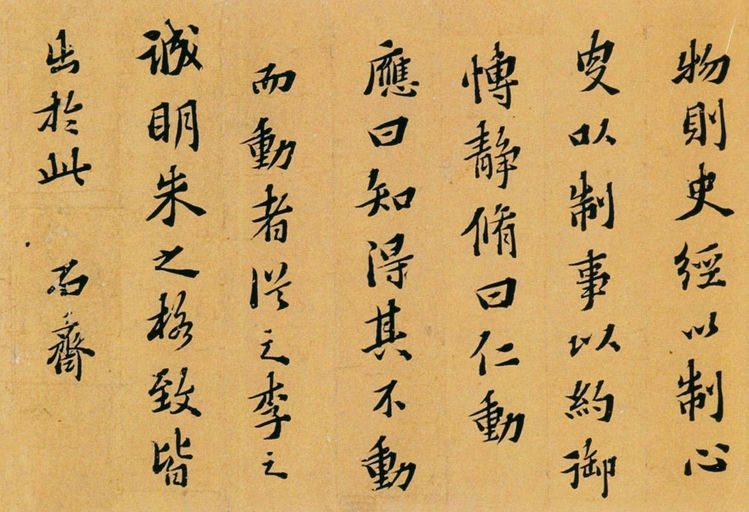 物則史經以制心
以制事以約御
愽靜脩曰仁動
應曰知得其不動
而動者從之李之
誠明朱之格致皆
出於此 齋